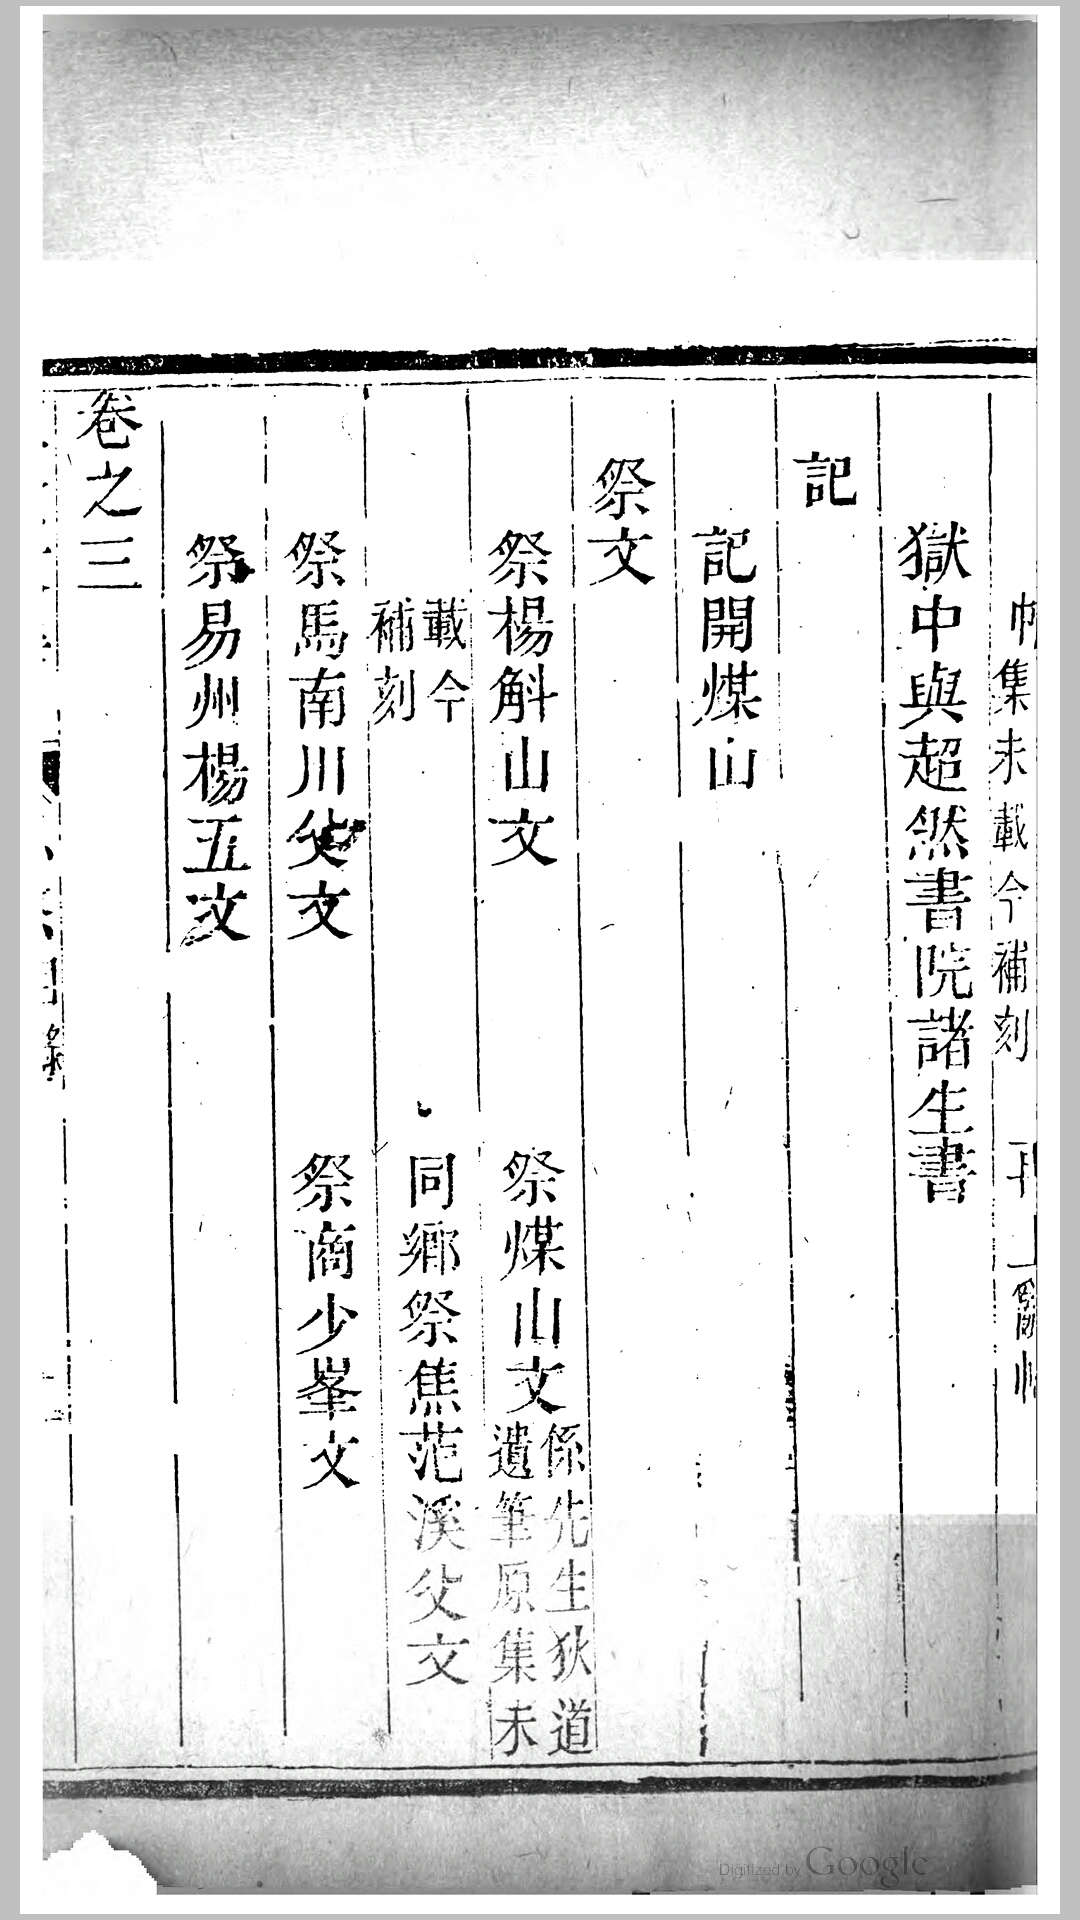 集未載今補刻
獄中與超然書院諸生書
記
記開煤山
祭文
祭楊斛山文 祭煤山文 係先生狄道
遺筆原集未
載今
補刻
同鄉祭焦范溪父文
祭馬南川父文 祭商少峯文
祭易州楊五文
卷之三
Digitized by Google